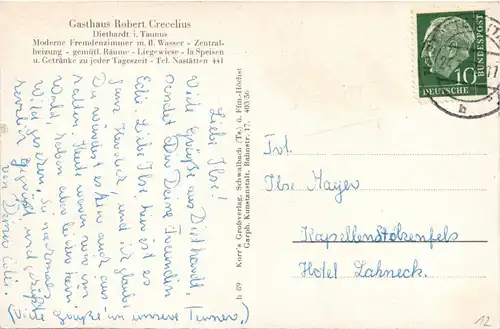 Gasthaus Robert Crecelius
Diethardt i. Taunus
Moderne Fremdenzimmer m. fl. Wasser - Zentral-
heizung - gemütl. Räume - Liegewiese - la Speisen
u. Getränke zu jeder Tageszeit - Tel. Nastätten 441
Liebe Ilse!
Viele Grüße aus Diethardt,
sendet Dir Deine Freundin
Edli. Liebe Ilse, hier ist es
ganz herrlich, und ich glaube
Du würdest es hier auch aus-
halten. Heute waren wir im
Wald, haben aber leider kein
Wild gesehen. Sei nochmal
herzlich gegrüßt und geküßt
von Deiner Edli.
(Viele Grüße an unsere Turner.)
h 89 Korr's Großverlag, Schwalbach (Ts.) ü. Ffm.-Höchst
Garph. Kunstanstalt, Bahnstr. 17. 403/56
10
DEUTSCHE
BUNDESPOST
b
Frl.
Ilse Mayer
Kapellenstolzenfels
Hotel Lahneck.
12